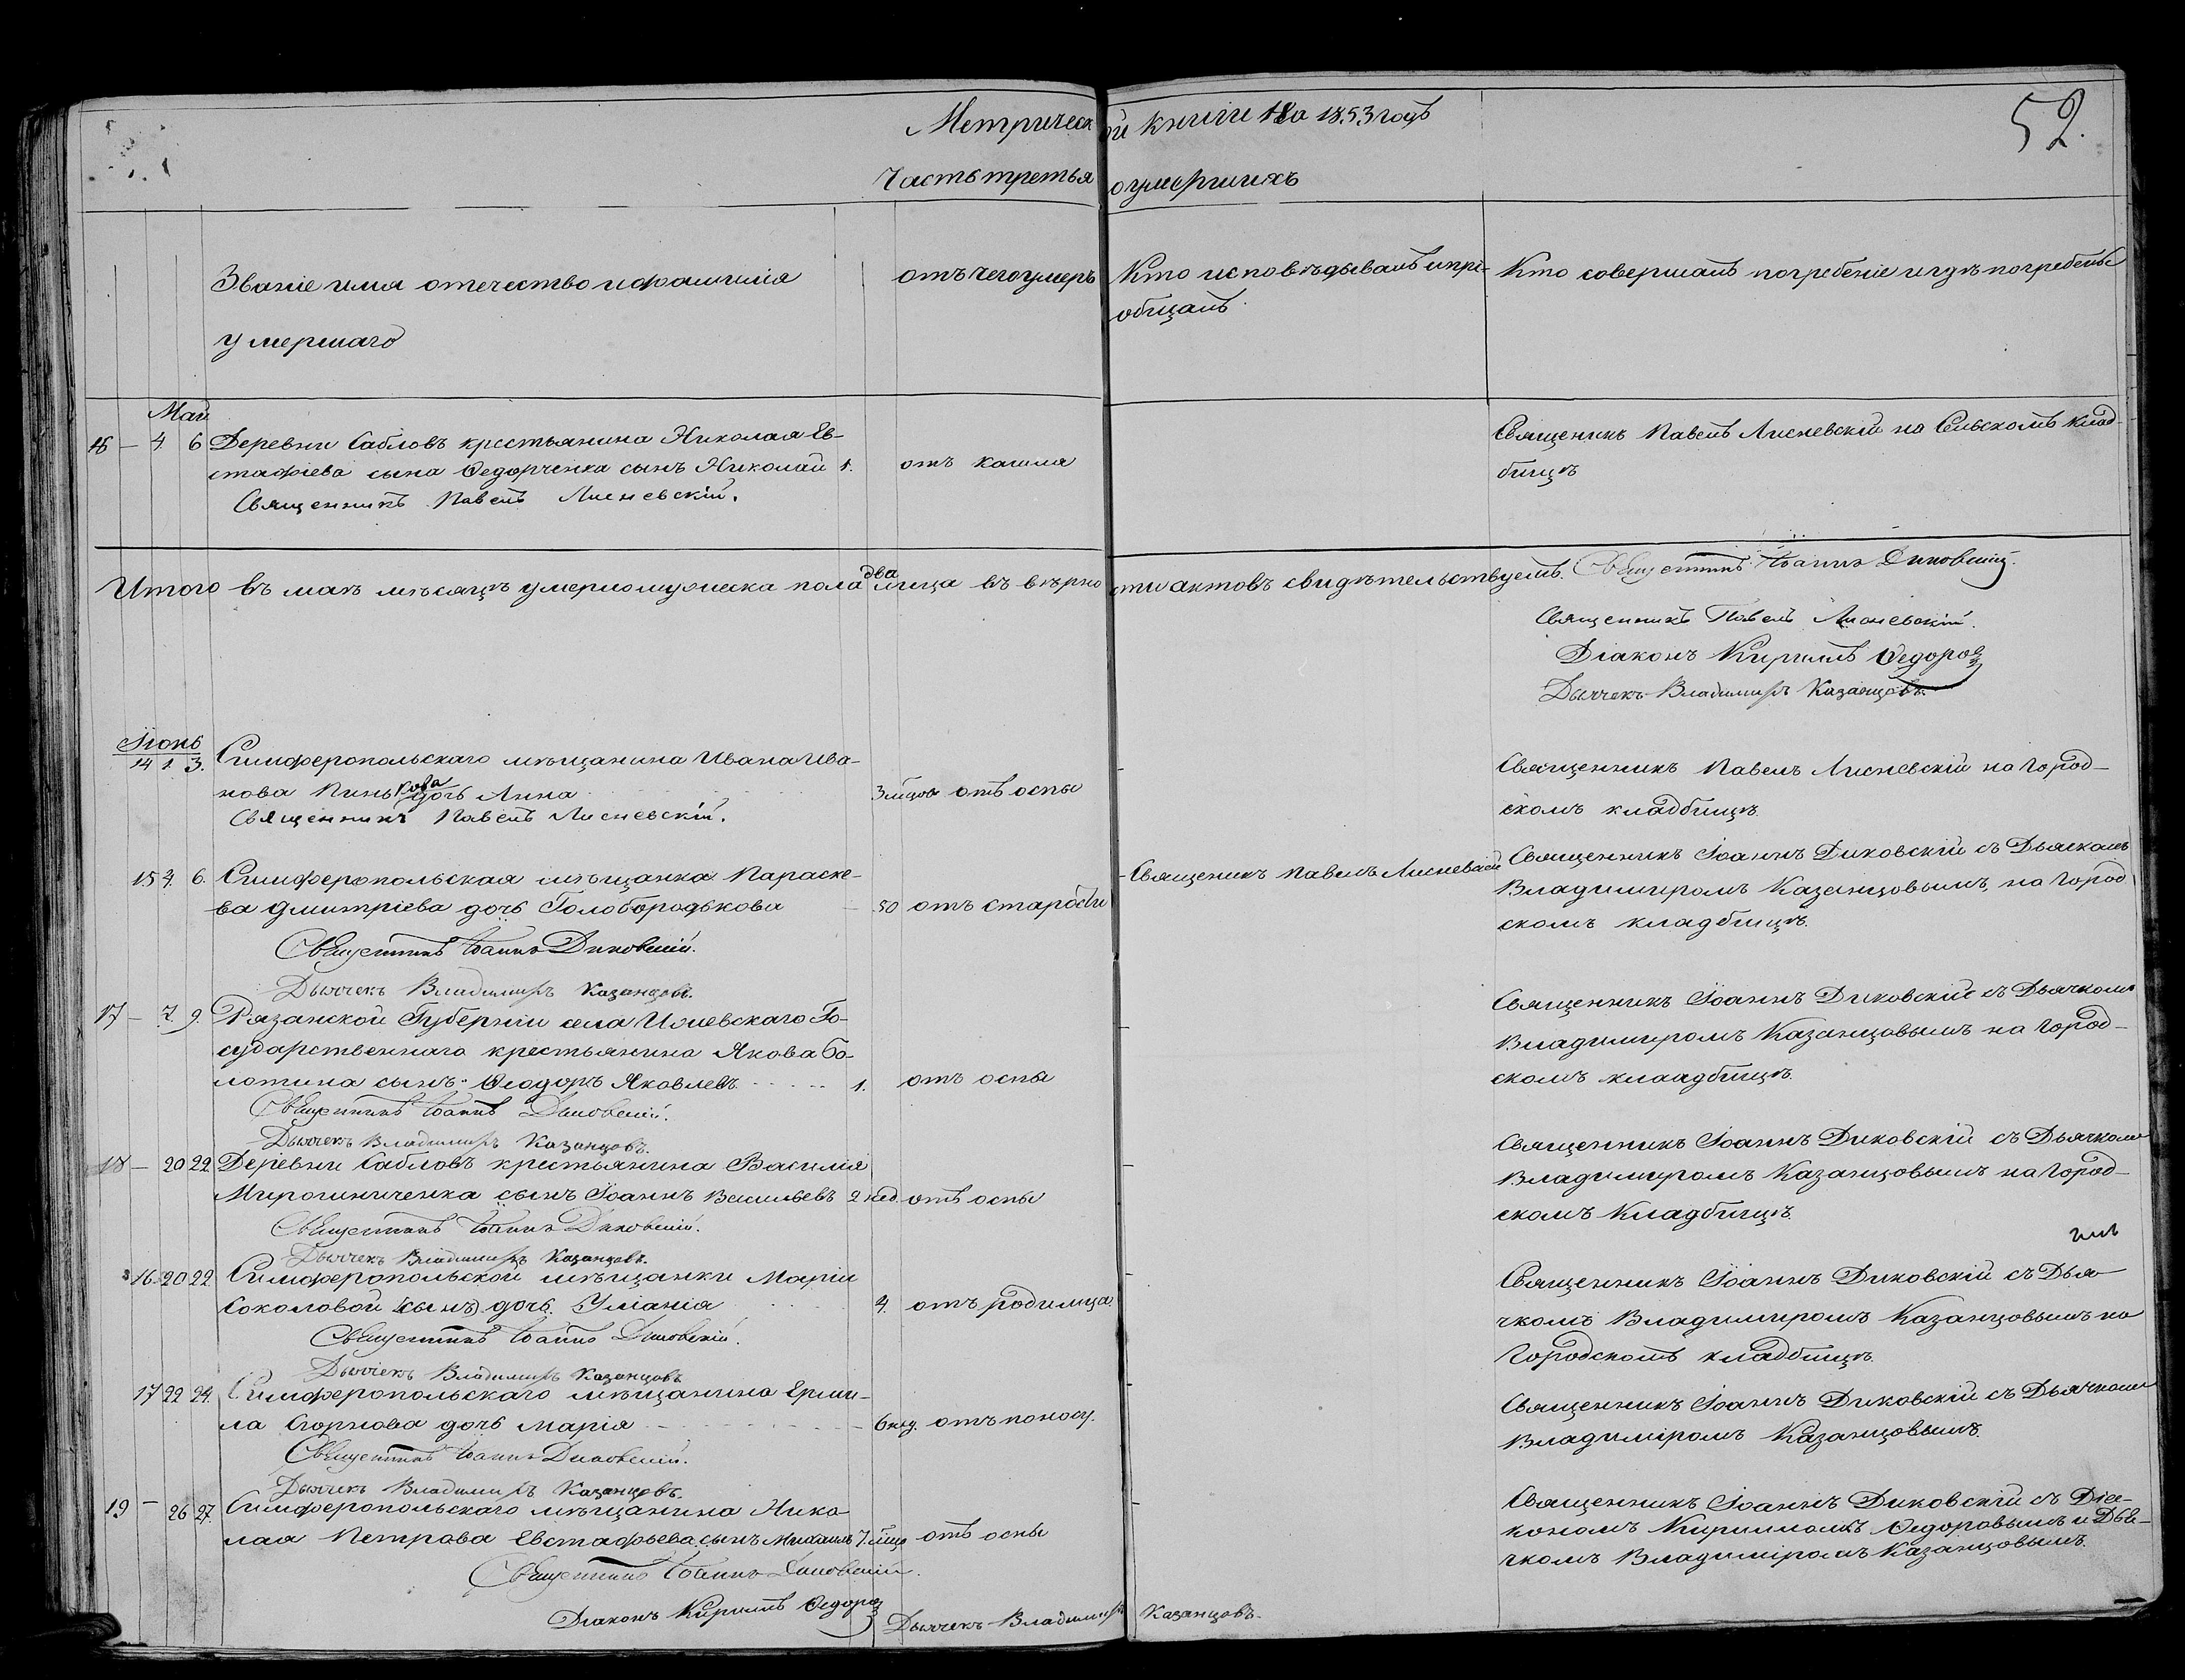 Метрической книги на 1853 годъ
52.
Часть третья о умершихъ
Званіе имя отечество и фамилія
умершаго
отъ чего умеръ
Кто исповѣдывалъ и прі-
общалъ
Кто совершалъ погребеніе и гдѣ погребенъ
Май
16 — 4 6 Деревни Сабловъ крестьянина Николая Ев-
стафіева сына Ѳедорченка сынъ Николай 1. отъ кашля
Священникъ Павелъ Лисневскій.
Священикъ Павелъ Лисневскій на Сельскомъ клад-
бищѣ
Итого въ маѣ мѣсяцѣ умерло мужеска пола два лица въ вѣрности актовъ свидѣтельствуемъ. Священникъ Іоаннъ Диковскій.
Священникъ Павелъ Лисневскій.
Діаконъ Кириллъ Ѳедоровъ
Дьячекъ Владимиръ Казанцовъ.
Іюнь
14 1. 3. Симферопольскаго мѣщанина Ивана Ива-
нова Пинькова дочь Анна 3 мцов отъ оспы
Священникъ Павелъ Лисневскій.
Священникъ Павелъ Лисневскій на Город-
скомъ кладбищѣ.
15 4. 6. Симферопольская мѣщанка Параске-
ва Дмитріева дочь Голобородькова 50 отъ старости
Священникъ Іоаннъ Диковскій.
Дьячекъ Владимиръ Казанцовъ.
Священикъ Павелъ Лисневскій
Священникъ Іоаннъ Диковскій съ Дьячкомъ
Владимиромъ Казанцовымъ, на Город
скомъ кладбищѣ.
17 — 7. 9. Рязанской Губерніи села Го-
сударственнаго крестьянина Якова Бо-
лотина сынъ Ѳеодоръ Яковлевъ 1. отъ оспы
Священникъ Іоаннъ Диковскій.
Дьячекъ Владимиръ Казанцовъ.
Священникъ Іоаннъ Диковскій съ Дьячкомъ
Владимиромъ Казанцовымъ на Город-
скомъ клаадбищѣ.
18 — 20 22 Деревни Сабловъ крестьянина Василія
Мирошниченка сынъ Іоаннъ Васильевъ 2 нед. отъ оспы
Священникъ Іоаннъ Диковскій.
Дьячекъ Владимиръ Казанцовъ.
Священникъ Іоаннъ Диковскій съ Дьячкомъ
Владимиромъ Казанцовымъ на Город-
скомъ Кладбищѣ.
16. 20 22 Симферопольской мѣщанки Маріи
Соколовой (сынъ) дочь Уліанія 4. отъ родимца.
Священникъ Іоаннъ Диковскій.
Дьячекъ Владимиръ Казанцовъ
Священникъ Іоаннъ Диковскій съ Дья-
чкомъ Владимиромъ Казанцовымъ на
Городскомъ кладбищѣ.
17 22 24. Симферопольскаго мѣщанина Ерми-
ла дочь Марія 6 нед. отъ поносу.
Священникъ Іоаннъ Диковскій.
Дьячекъ Владимиръ Казанцовъ.
Священникъ Іоаннъ Диковскій съ Дьячкомъ
Владиміромъ Казанцовымъ.
19 — 26 27. Симферопольскаго мѣщанина Нико-
лая Петрова Евстафьева сынъ Михаилъ 7. мцо отъ оспы
Священникъ Іоаннъ Диковскій.
Діаконъ Кириллъ Ѳедоровъ Дьячекъ Владимиръ Казанцовъ.
Священникъ Іоаннъ Диковскій съ Діа-
кономъ Кирилломъ Ѳедоровымъ и Дья-
чкомъ Владиміромъ Казанцовымъ.